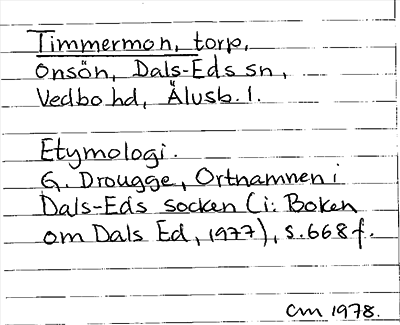 Timmermon, torp,
Onsön, Dals-Eds sn,
Vedbo hd, Älvsb. l.
Etymologi.
G. Drougge, Ortnamnen i
Dals-Eds socken (i: Boken
om Dals Ed, 1977), s. 668 f.
CM 1978.